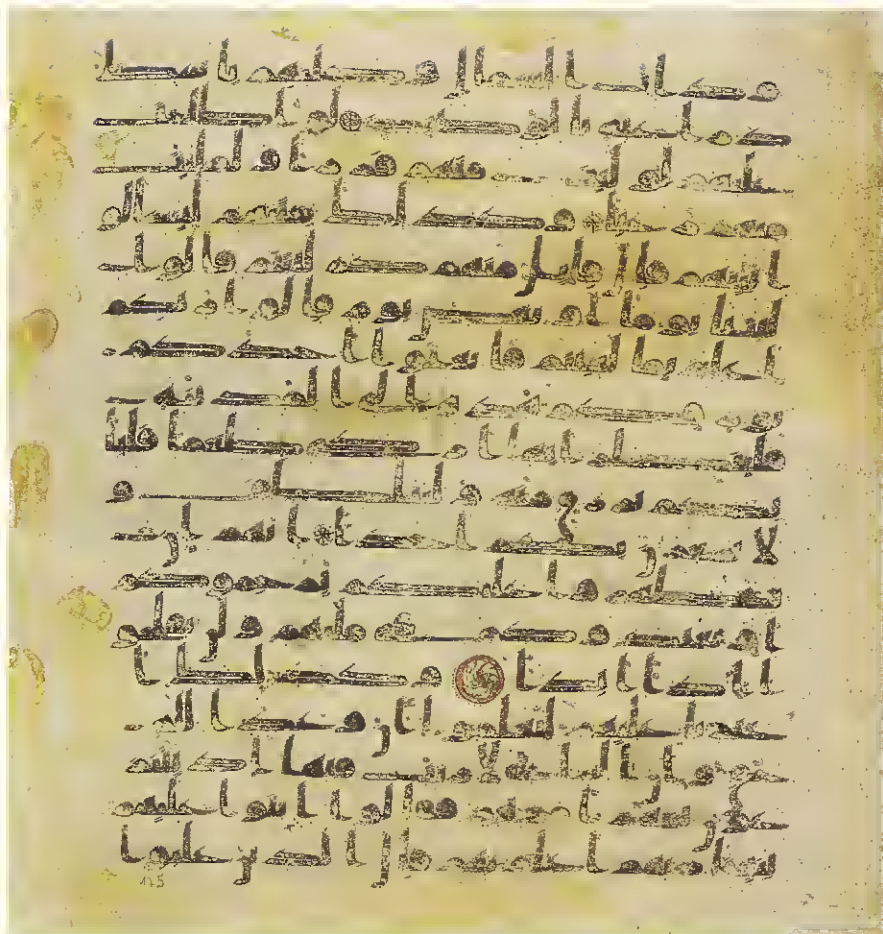 وذات الشمال وكلبهم باسط
ذرعيه بالوصيد لو اطلعت
عليهم لوليت منهم فررا ولملئت
منهم رعبا وكذلك بعثنهم ليتسالوا
بينهم قال قائل منهم كم لبثتم قالوا
لبثنا يوما او بعض يوم قالوا ربكم
اعلم بما لبثتم فابعثوا احدكم
بورقكم هذه الى المدينه
فلينظر ايها ازكى طعاما فليا
تكم برزق منه وليتلطف و
لا يشعرن بكم احدا انهم ان
يظهروا عليكم يرجموكم
او يعيدوكم في ملتهم ولن تفلحو
ا اذا ابدا وكذلك اعثرنا
عليهم ليعلموا ان وعد الله
حق وان الساعه لا ريب فيها اذ يتن
زعون بينهم امرهم فقالوا ابنوا عليهم
بنينا ربهم اعلم بهم قال الذين غلبوا
175